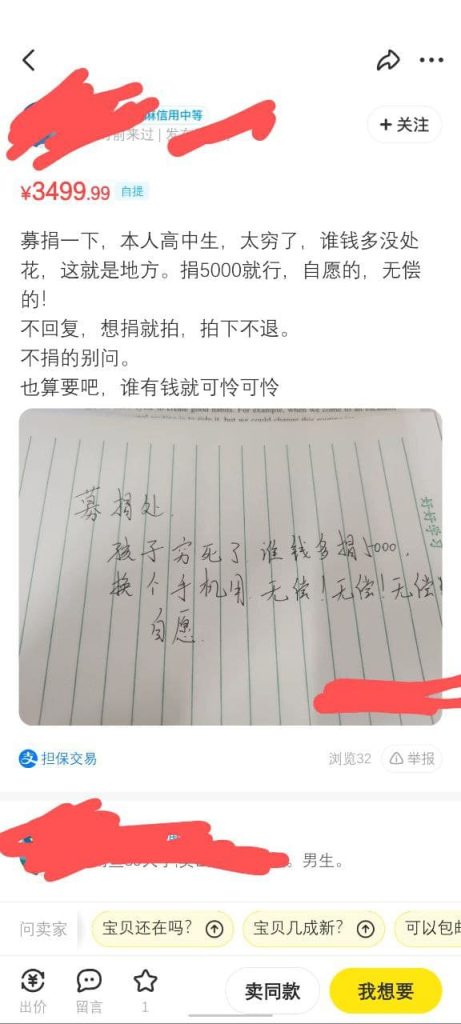 麻信用中等
前来过 | 发
+ 关注
¥3499.99 自提
募捐一下，本人高中生，太穷了，谁钱多没处
花，这就是地方。捐5000就行，自愿的，无偿
的！
不回复，想捐就拍，拍下不退。
不捐的别问。
也算要吧，谁有钱就可怜可怜
to create good habits. For example, when we come to an escalator
好好学习
募捐处.
孩子穷死了 谁钱多捐5000,
换个手机用 无偿！无偿！无偿！
自愿.
支 担保交易
浏览32 举报
。男生。
问卖家 宝贝还在吗？ 宝贝几成新？ 可以包邮
出价 留言 1 卖同款 我想要